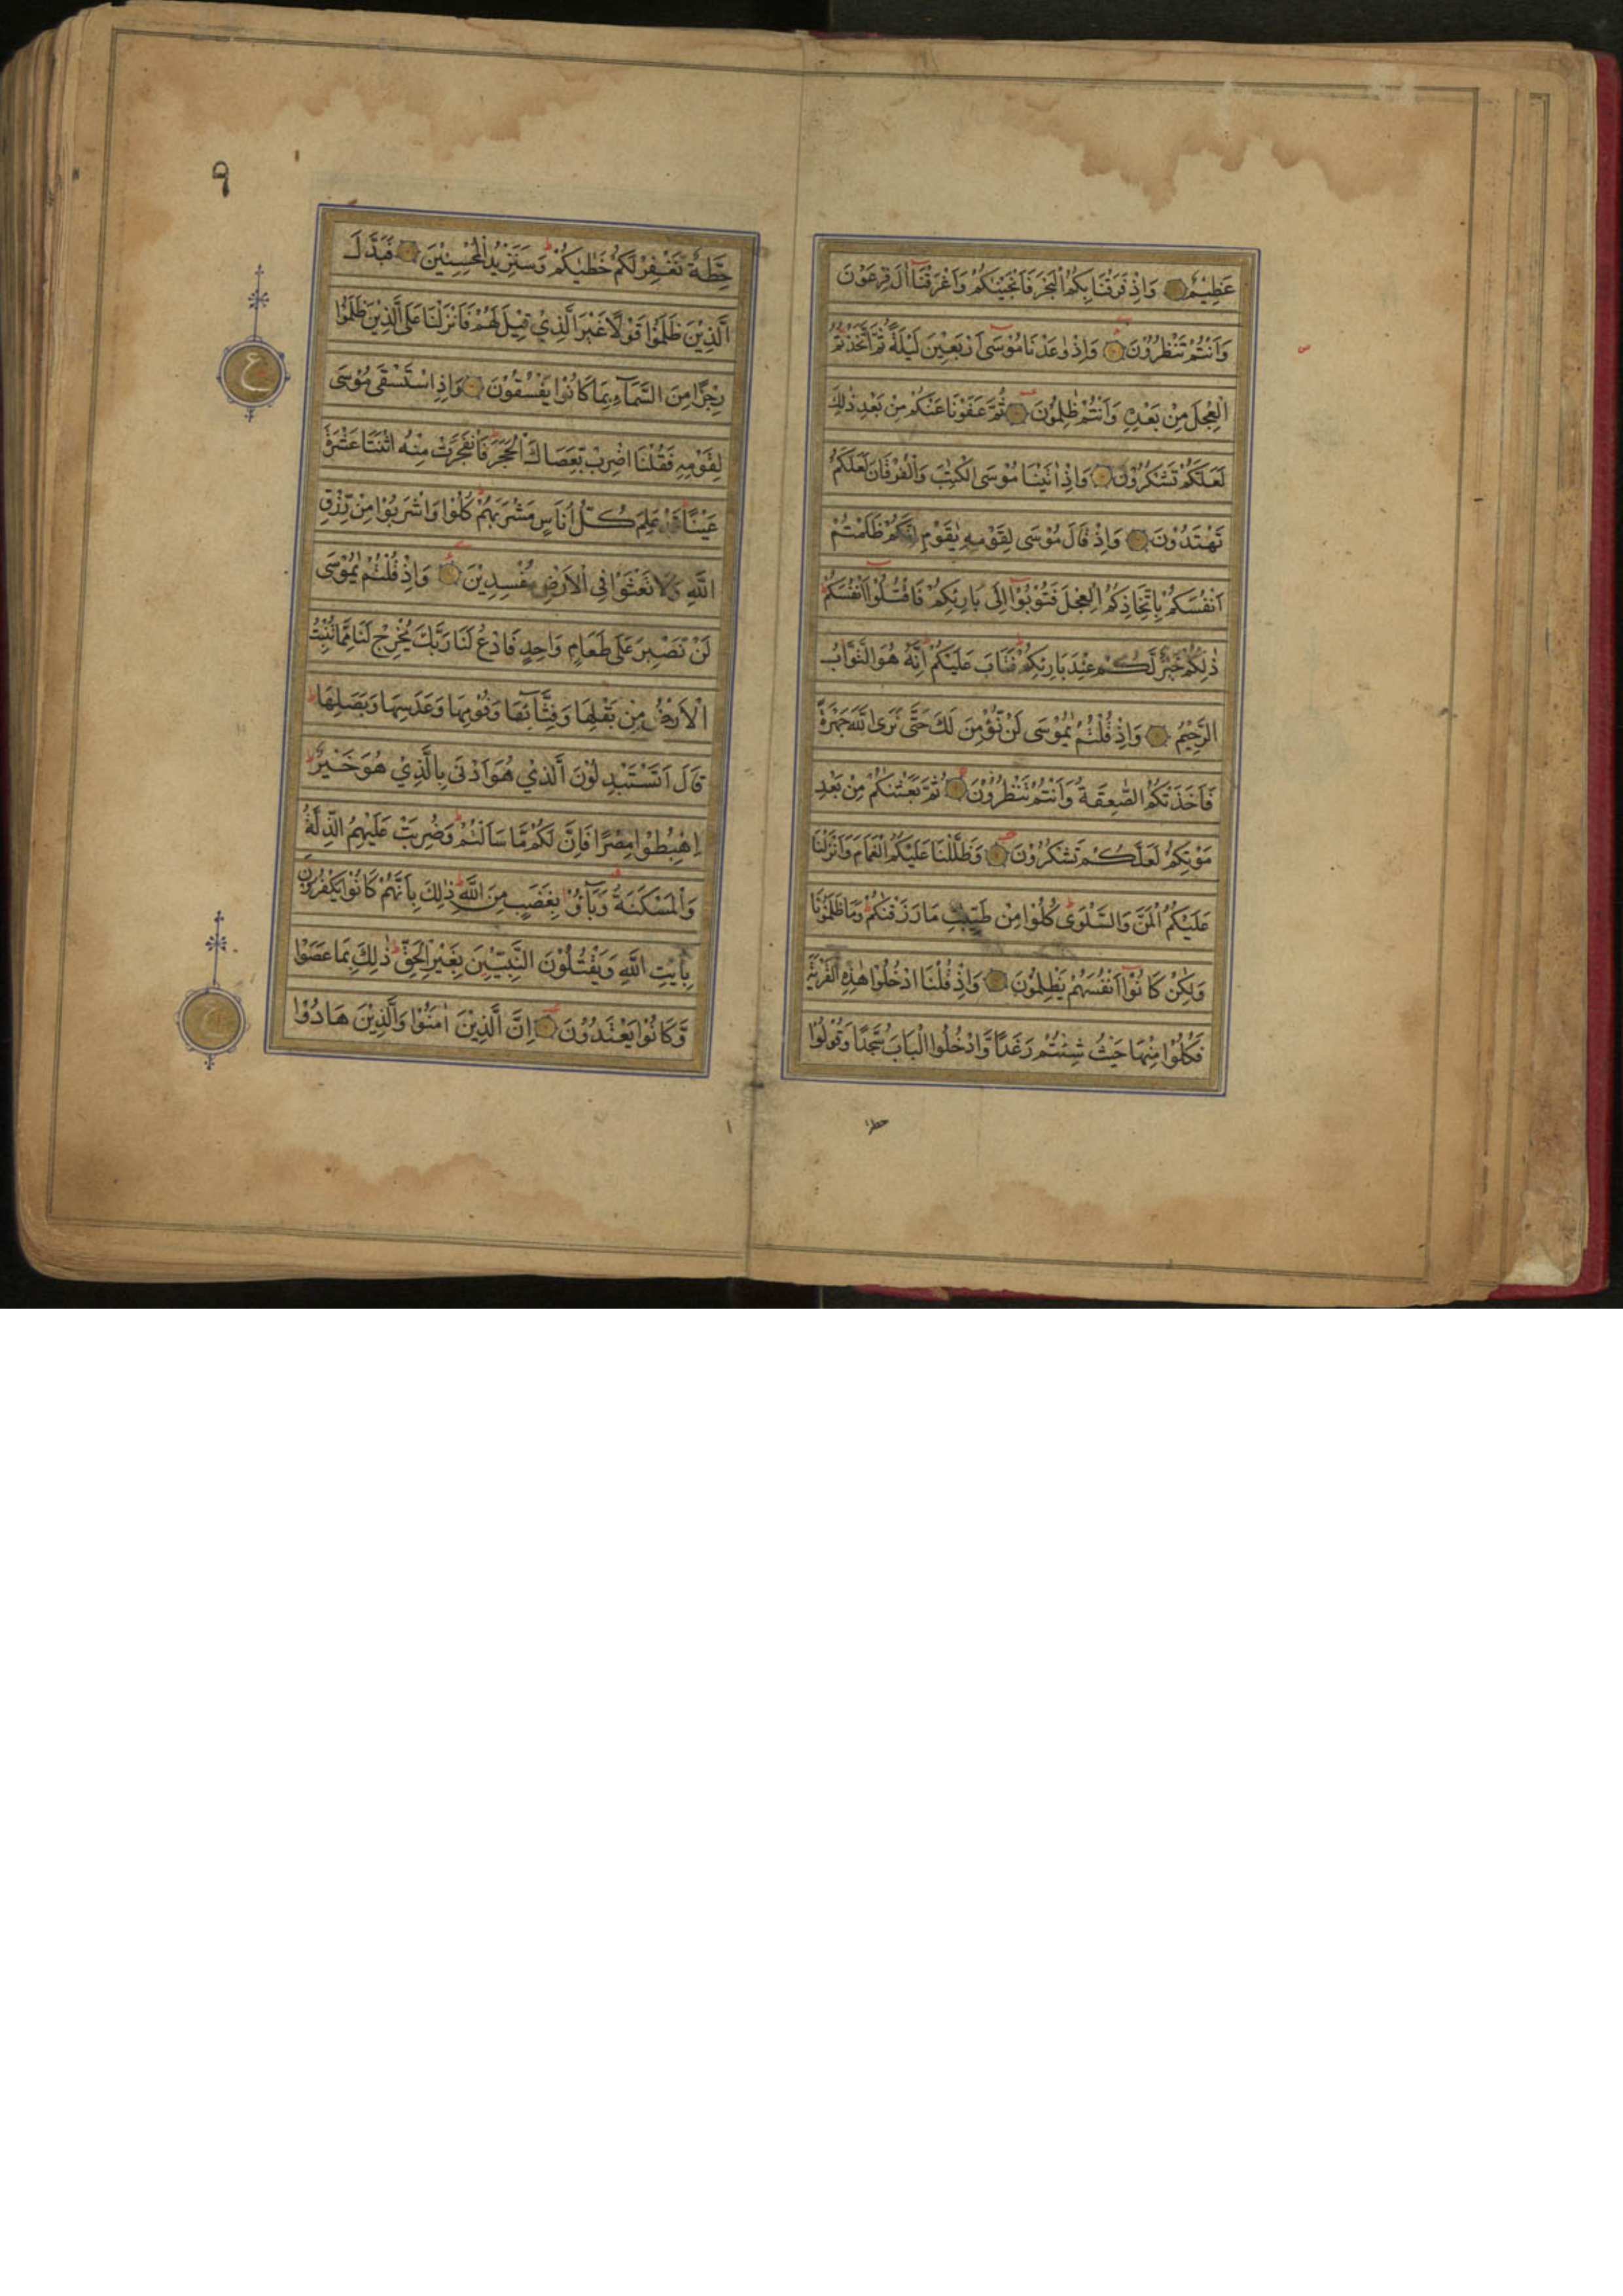 عَظِيْمٌ وَاِذْ فَرَقْنَا بِكُمُ الْبَحْرَ فَاَنْجَيْنٰكُمْ وَاَغْرَقْنَآ اٰلَ فِرْعَوْنَ
وَاَنْتُمْ تَنْظُرُوْنَ وَاِذْ وٰعَدْنَا مُوْسَى اَرْبَعِيْنَ لَيْلَةً ثُمَّ اتَّخَذْتُمُ
الْعِجْلَ مِنْ بَعْدِهٖ وَاَنْتُمْ ظٰلِمُوْنَ ثُمَّ عَفَوْنَا عَنْكُمْ مِنْ بَعْدِ ذٰلِكَ
لَعَلَّكُمْ تَشْكُرُوْنَ وَاِذْ اٰتَيْنَا مُوْسَى الْكِتٰبَ وَالْفُرْقَانَ لَعَلَّكُمْ
تَهْتَدُوْنَ وَاِذْ قَالَ مُوْسَى لِقَوْمِهٖ يٰقَوْمِ اِنَّكُمْ ظَلَمْتُمْ
اَنْفُسَكُمْ بِاتِّخَاذِكُمُ الْعِجْلَ فَتُوْبُوْٓا اِلٰى بَارِئِكُمْ فَاقْتُلُوْٓا اَنْفُسَكُمْ
ذٰلِكُمْ خَيْرٌ لَّكُمْ عِنْدَ بَارِئِكُمْ فَتَابَ عَلَيْكُمْ اِنَّهٗ هُوَ التَّوَّابُ
الرَّحِيْمُ وَاِذْ قُلْتُمْ يٰمُوْسَى لَنْ نُّؤْمِنَ لَكَ حَتّٰى نَرَى اللّٰهَ جَهْرَةً
فَاَخَذَتْكُمُ الصّٰعِقَةُ وَاَنْتُمْ تَنْظُرُوْنَ ثُمَّ بَعَثْنٰكُمْ مِنْ بَعْدِ
مَوْتِكُمْ لَعَلَّكُمْ تَشْكُرُوْنَ وَظَلَّلْنَا عَلَيْكُمُ الْغَمَامَ وَاَنْزَلْنَا
عَلَيْكُمُ الْمَنَّ وَالسَّلْوٰى كُلُوْا مِنْ طَيِّبٰتِ مَا رَزَقْنٰكُمْ وَمَا ظَلَمُوْنَا
وَلٰكِنْ كَانُوْٓا اَنْفُسَهُمْ يَظْلِمُوْنَ وَاِذْ قُلْنَا ادْخُلُوْا هٰذِهِ الْقَرْيَةَ
فَكُلُوْا مِنْهَا حَيْثُ شِئْتُمْ رَغَدًا وَّادْخُلُوا الْبَابَ سُجَّدًا وَّقُوْلُوْا
حطة
٩
حِطَّةٌ نَّغْفِرْ لَكُمْ خَطٰيٰكُمْ وَسَنَزِيْدُ الْمُحْسِنِيْنَ فَبَدَّلَ
الَّذِيْنَ ظَلَمُوْا قَوْلًا غَيْرَ الَّذِيْ قِيْلَ لَهُمْ فَاَنْزَلْنَا عَلَى الَّذِيْنَ ظَلَمُوْا
رِجْزًا مِنَ السَّمَآءِ بِمَا كَانُوْا يَفْسُقُوْنَ وَاِذِ اسْتَسْقٰى مُوْسَى
لِقَوْمِهٖ فَقُلْنَا اضْرِبْ بِّعَصَاكَ الْحَجَرَ فَانْفَجَرَتْ مِنْهُ اثْنَتَا عَشْرَةَ
عَيْنًا قَدْ عَلِمَ كُلُّ اُنَاسٍ مَشْرَبَهُمْ كُلُوْا وَاشْرَبُوْا مِنْ رِّزْقِ
اللّٰهِ وَلَا تَعْثَوْا فِى الْاَرْضِ مُفْسِدِيْنَ وَاِذْ قُلْتُمْ يٰمُوْسَى
لَنْ نَّصْبِرَ عَلٰى طَعَامٍ وَاحِدٍ فَادْعُ لَنَا رَبَّكَ يُخْرِجْ لَنَا مِمَّا تُنْبِتُ
الْاَرْضُ مِنْ بَقْلِهَا وَقِثَّآئِهَا وَفُوْمِهَا وَعَدَسِهَا وَبَصَلِهَا
قَالَ اَتَسْتَبْدِلُوْنَ الَّذِيْ هُوَ اَدْنٰى بِالَّذِيْ هُوَ خَيْرٌ
اِهْبِطُوْا مِصْرًا فَاِنَّ لَكُمْ مَّا سَاَلْتُمْ وَضُرِبَتْ عَلَيْهِمُ الذِّلَّةُ
وَالْمَسْكَنَةُ وَبَآؤُ بِغَضَبٍ مِنَ اللّٰهِ ذٰلِكَ بِاَنَّهُمْ كَانُوْا يَكْفُرُوْنَ
بِاٰيٰتِ اللّٰهِ وَيَقْتُلُوْنَ النَّبِيّٖنَ بِغَيْرِ الْحَقِّ ذٰلِكَ بِمَا عَصَوْا
وَّكَانُوْا يَعْتَدُوْنَ اِنَّ الَّذِيْنَ اٰمَنُوْا وَالَّذِيْنَ هَادُوْا
ع
ع